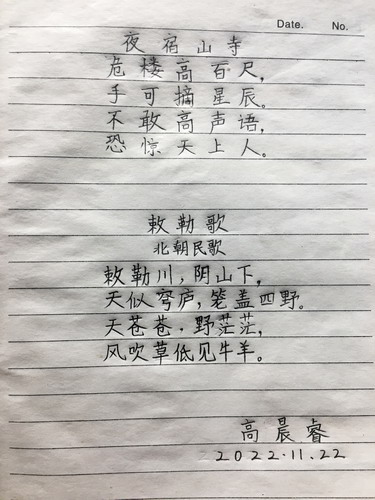 Date. No.
夜宿山寺
危楼高百尺，
手可摘星辰。
不敢高声语，
恐惊天上人。
敕勒歌
北朝民歌
敕勒川，阴山下，
天似穹庐，笼盖四野。
天苍苍，野茫茫，
风吹草低见牛羊。
高晨睿
2022.11.22